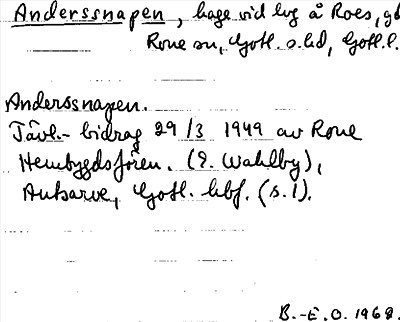 Anderssnapen, hage vid lvg å Roes, gd
Rone sn, Gotl. s. hd, Gotl. l.
Anderssnapen.
Tävl.- bidrag 29/3 1949 av Rone
Hembygdsfören. (E. Wahlby),
Autsarve, Gotl. hbf. (s. 1).
B.-E. O. 1968.